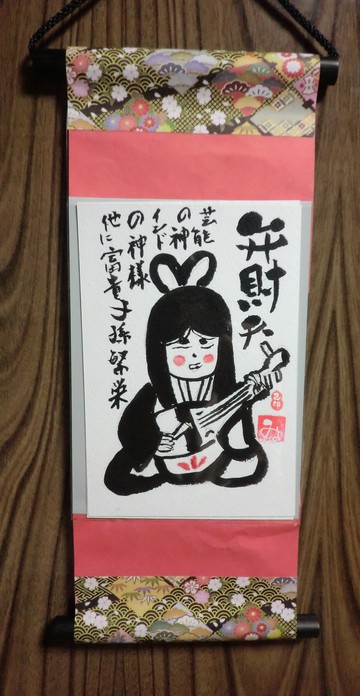 弁財天
芸能
の神
インド
の神様
他に富貴子孫繁栄